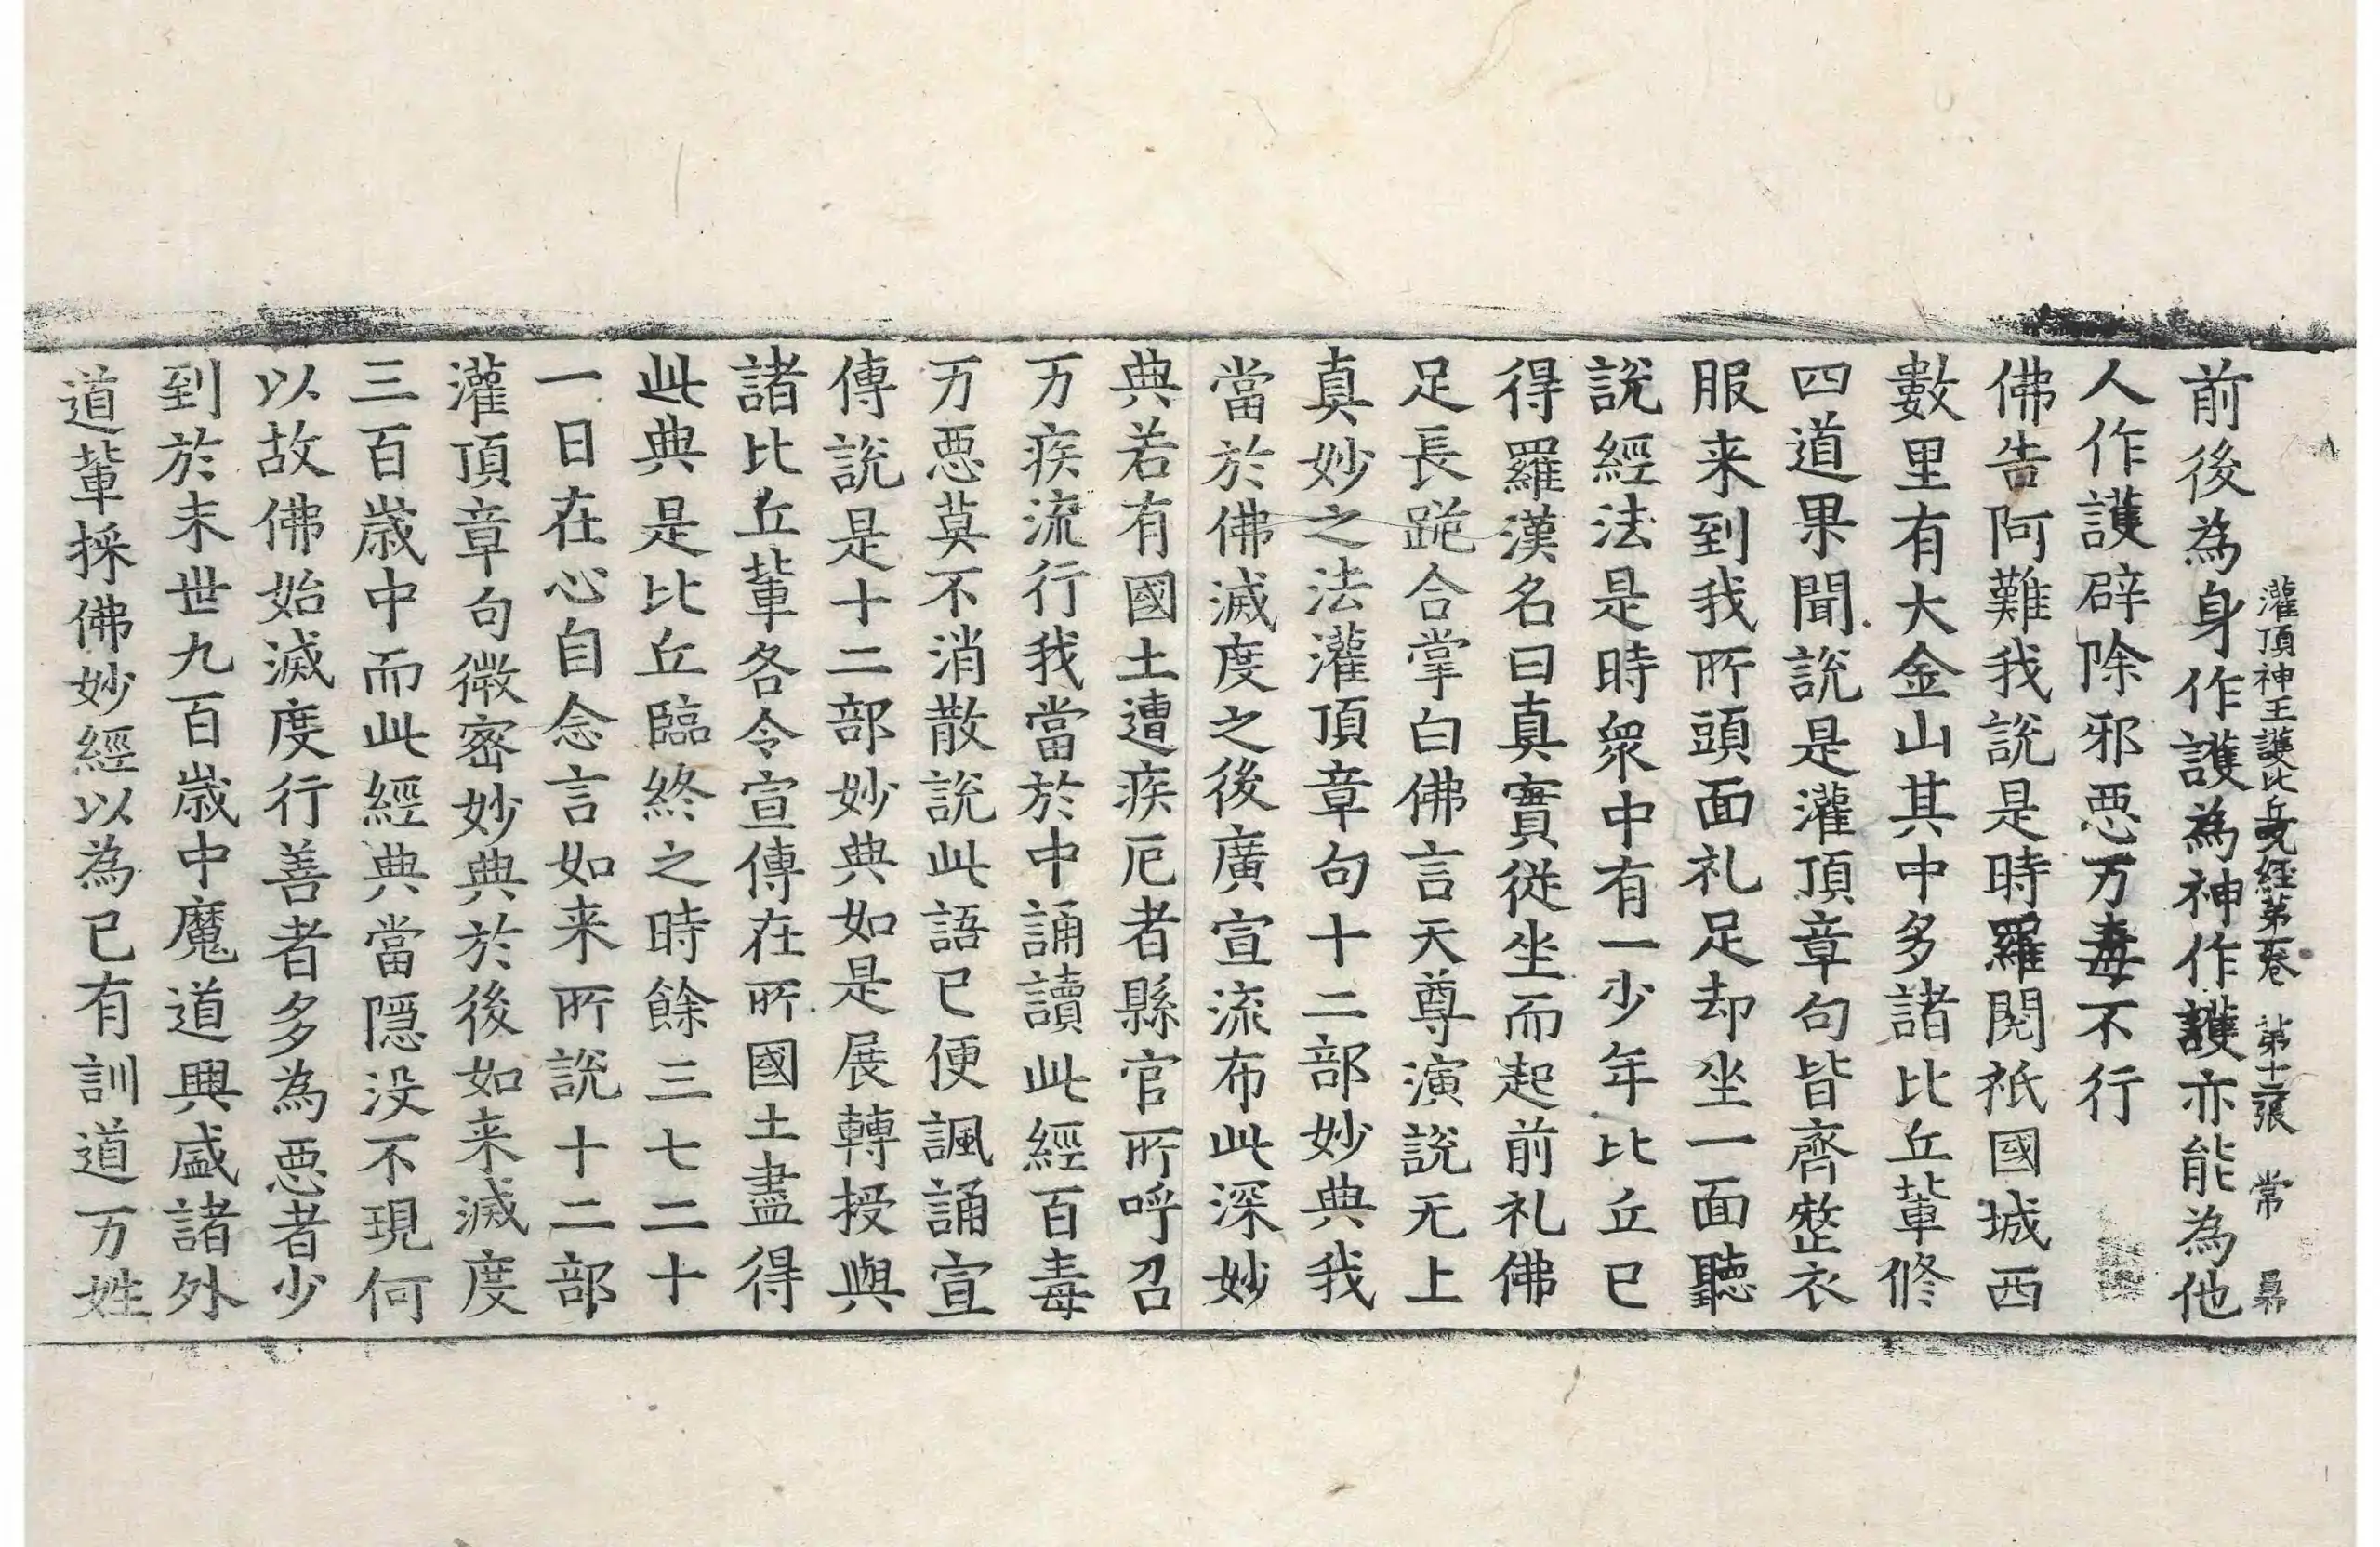 灌頂神王護比丘呪經第一卷 第十二張 常
前後為身作護為神作護亦能為他
人作護辟除邪惡万毒不行
佛告阿難我說是時羅閱祇國城西
數里有大金山其中多諸比丘軰修
四道果聞說是灌頂章句皆齊整衣
服来到我所頭面礼足却坐一面聽
說經法是時眾中有一少年比丘已
得羅漢名曰真實從坐而起前礼佛
足長跪合掌白佛言天尊演說无上
真妙之法灌頂章句十二部妙典我
當於佛滅度之後廣宣流布此深妙
典若有國土遭疾厄者縣官所呼召
万疾流行我當於中誦讀此經百毒
万惡莫不消散說此語已便諷誦宣
傳說是十二部妙典如是展轉授與
諸比丘軰各令宣傳在所國土盡得
此典是比丘臨終之時餘三七二十
一日在心自念言如来所說十二部
灌頂章句微密妙典於後如来滅度
三百歲中而此經典當隱没不現何
以故佛始滅度行善者多為惡者少
到於末世九百歲中魔道興盛諸外
道軰採佛妙經以為已有訓道万姓